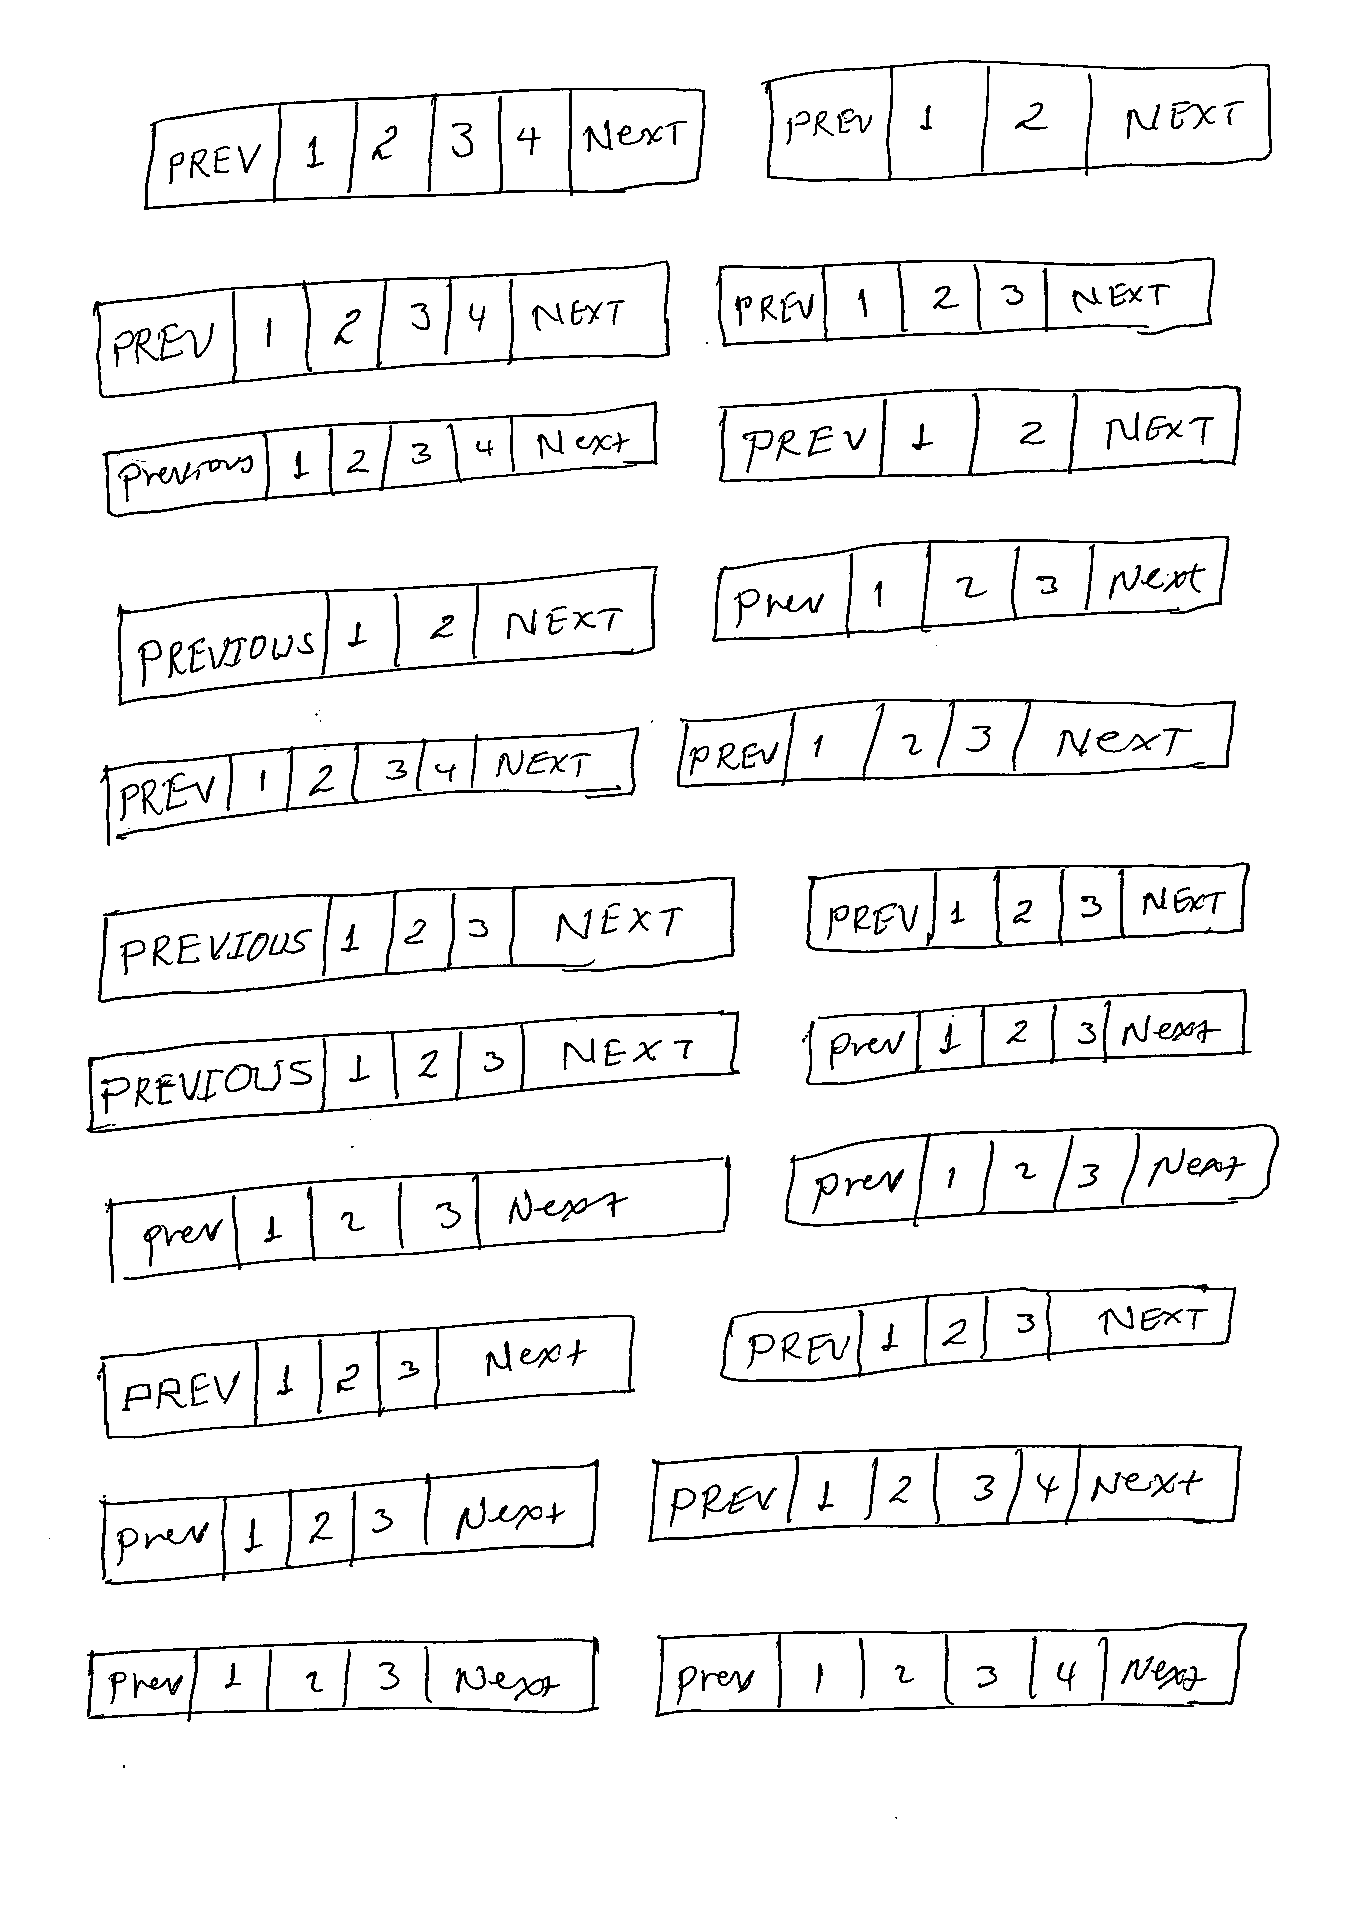 PREV 1 2 3 4 NexT
PREV 1 2 NEXT
PREV 1 2 3 4 NEXT
PREV 1 2 3 NEXT
Previous 1 2 3 4 Next
PREV 1 2 NEXT
PREVIOUS 1 2 NEXT
Prev 1 2 3 Next
PREV 1 2 3 4 NEXT
PREV 1 2 3 NexT
PREVIOUS 1 2 3 NEXT
PREV 1 2 3 NEXT
PREVIOUS 1 2 3 NEXT
Prev 1 2 3 Next
prev 1 2 3 Next
Prev 1 2 3 Next
PREV 1 2 3 Next
PREV 1 2 3 NEXT
Prev 1 2 3 Next
PREV 1 2 3 4 Next
Prev 1 2 3 Next
Prev 1 2 3 4 Next